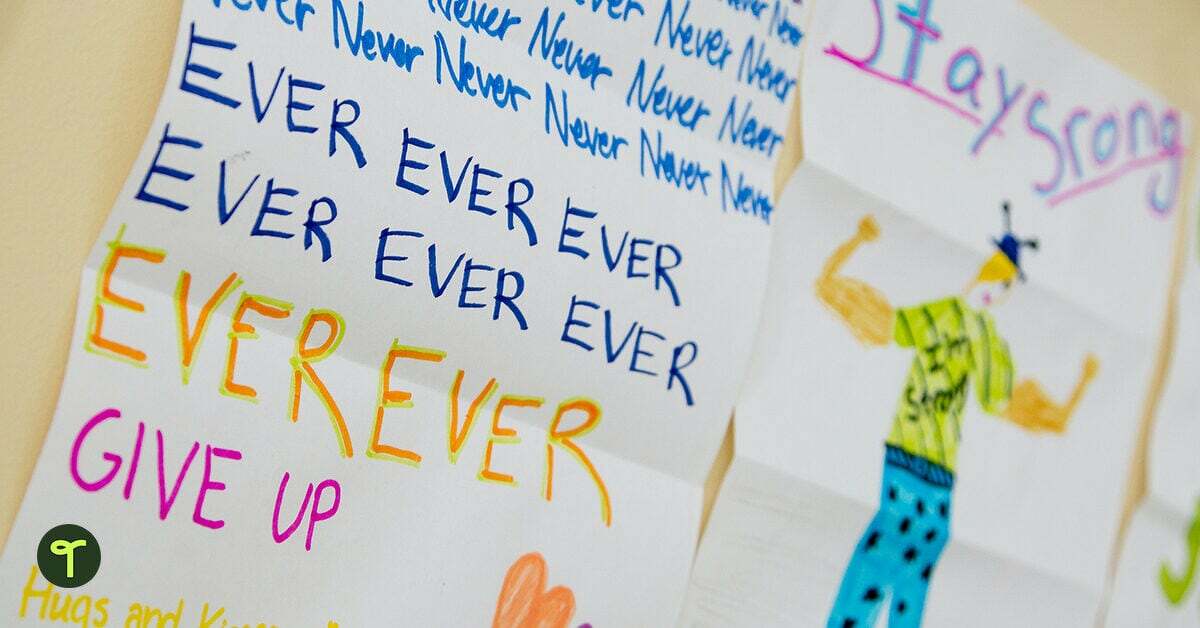 Never Never
Never Never
Never Never Never Never
Never Never Never Never Never
EVER EVER EVER
EVER EVER EVER
EVER EVER
GIVE UP
Hugs and
Stay Srong
I'm
Strong